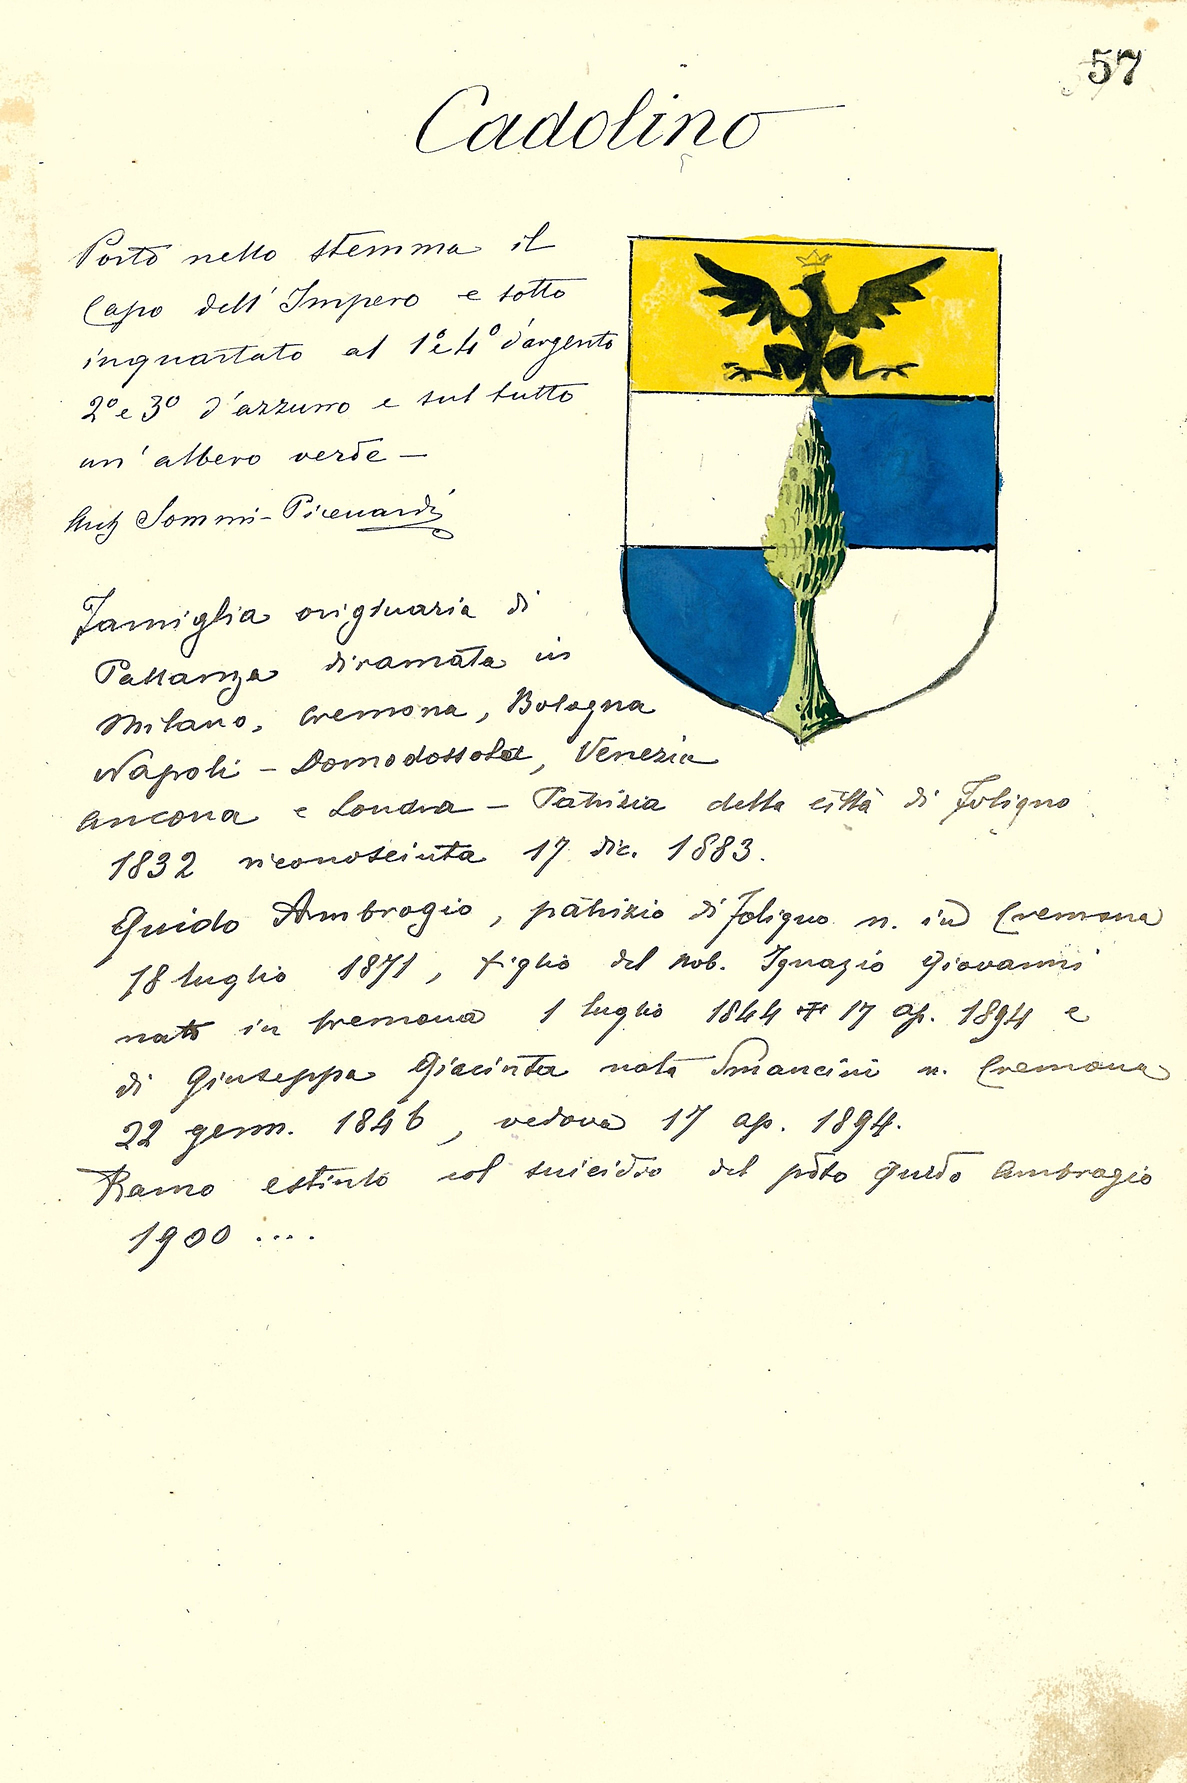 57
Cadolino
Portò nello stemma il
Capo dell'Impero e sotto
inquartato al 1º e 4º d'argento
2º e 3º d'azzurro e sul tutto
un'albero verde —
Sommi-Picenardi
Famiglia originaria di
Pallanza diramata in
Milano, Cremona, Bologna
Napoli — Domodossola, Venezia
Ancona e Londra — Patrizia della città di Foligno
1832 riconosciuta 17 dic. 1883.
Guido Ambrogio, patrizio di Foligno n. in Cremona
18 luglio 1871, figlio del nob. Ignazio Giovanni
nato in Cremona 1 luglio 1844 ✝ 17 ap. 1894 e
di Giuseppa Giacinta nata Smancini n. Cremona
22 genn. 1846, vedova 17 ap. 1894.
Ramo estinto col suicidio del pdto Guido Ambrogio
1900 ....